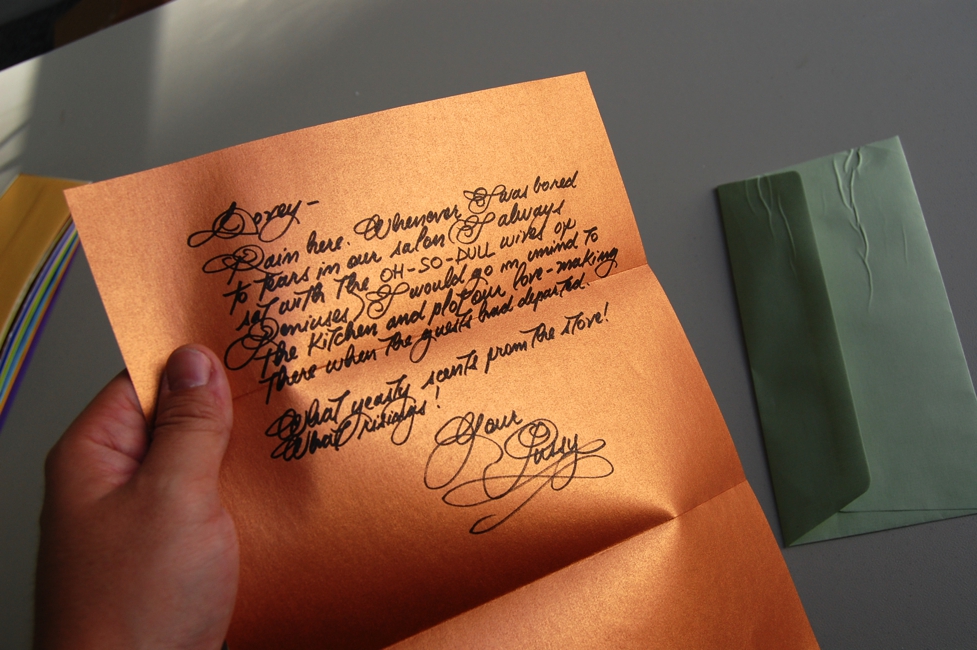 Lovey-
Rain here. Whenever I was bored
to tears in our salon (I always
sat with the OH-SO-DULL wives of
Geniuses) I would go in mind to
the Kitchen and plot our love-making
there when the guests had departed.
What yeasty scents from the stove!
What risings!
Your
Pussy